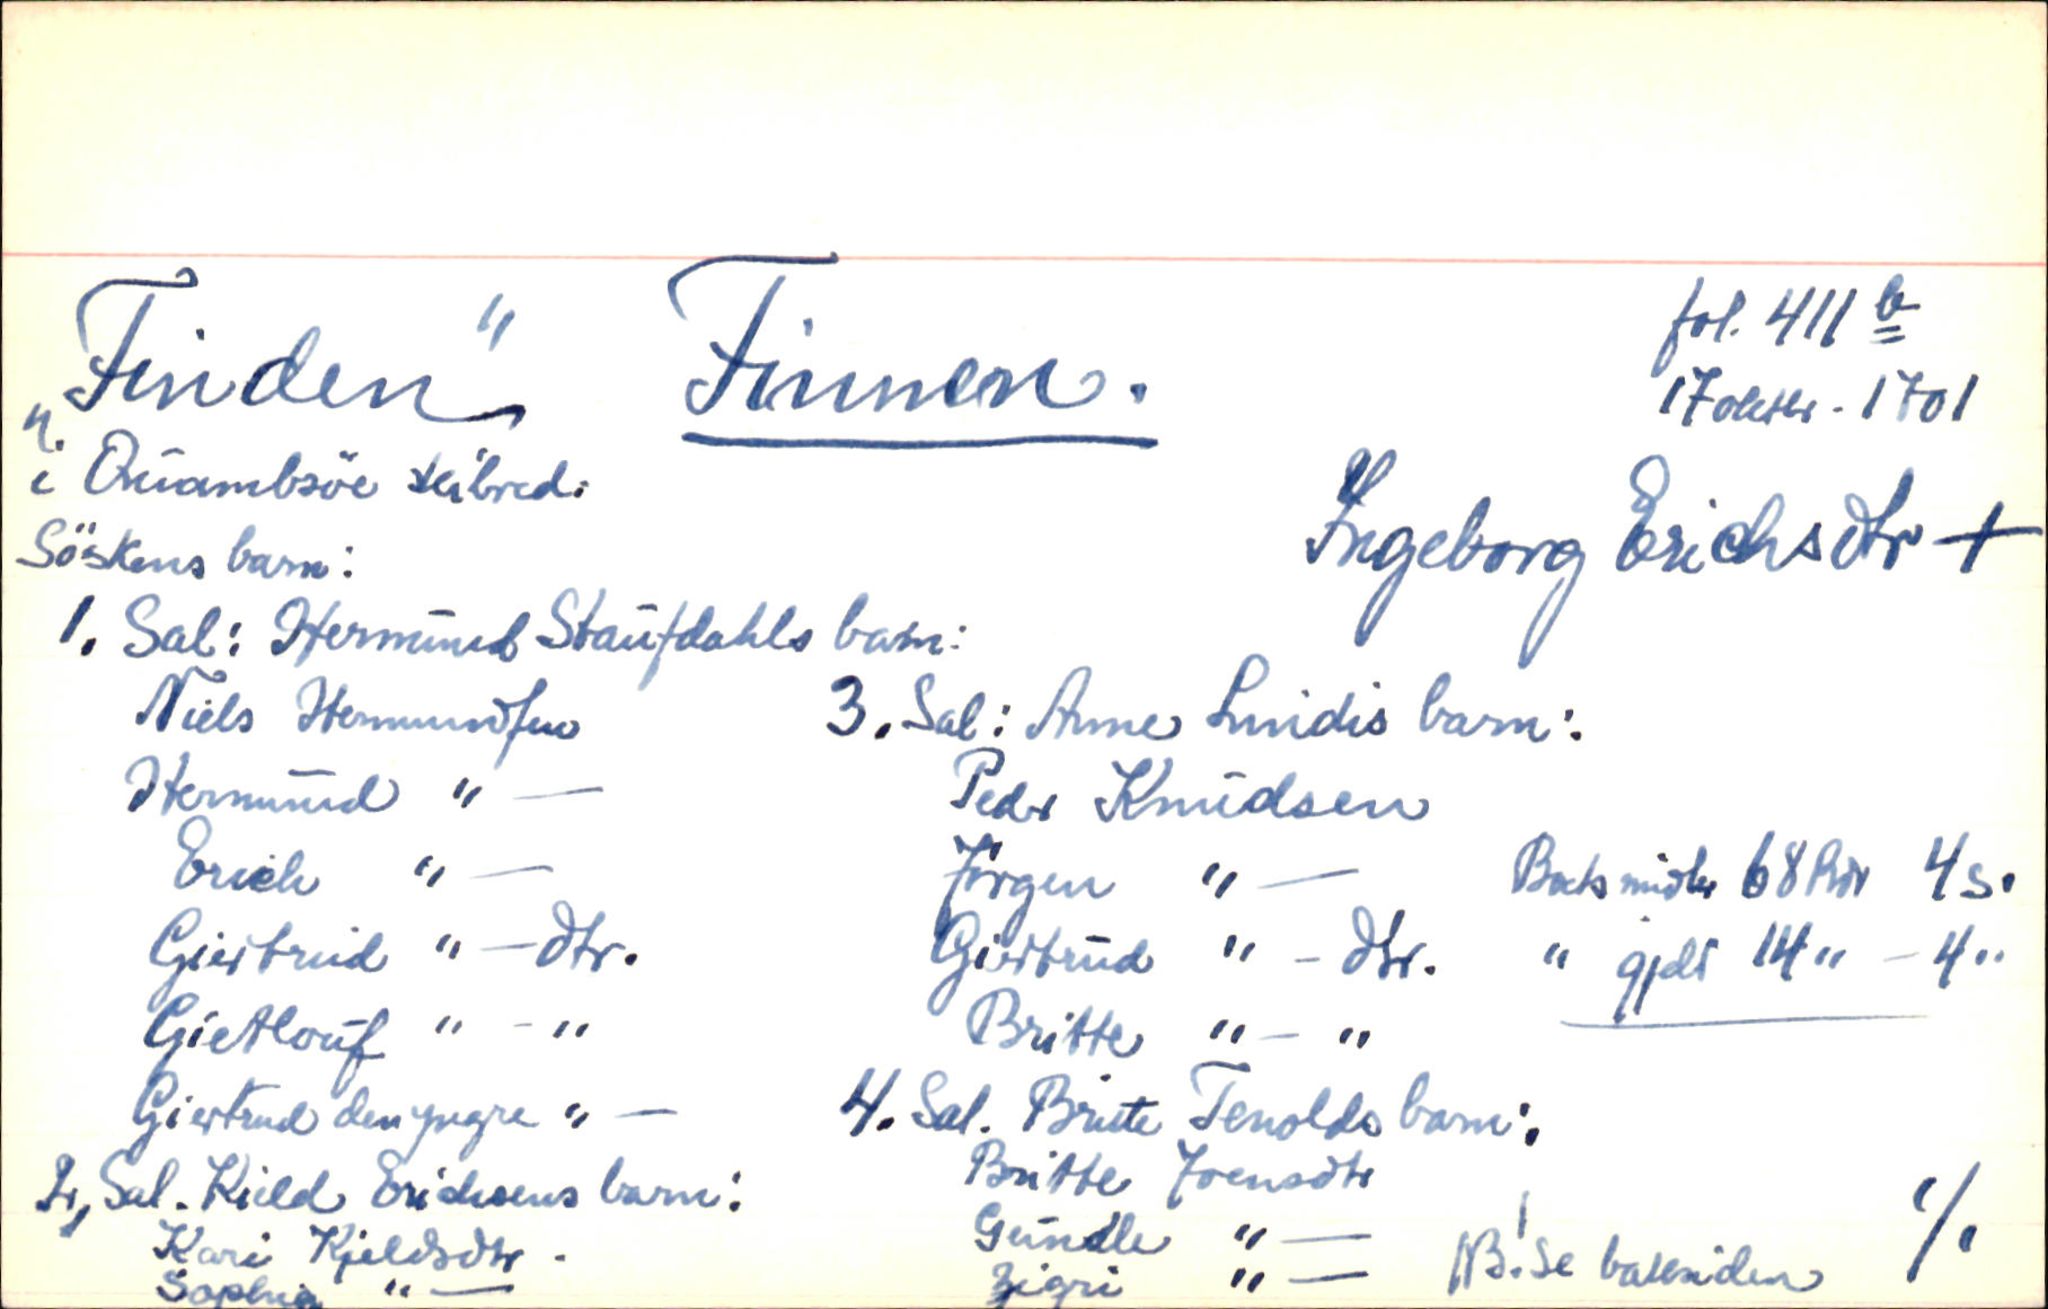 "Finden" Finnen.
fol. 411 b
17 oktbr. 1701
i Qüambsöe skibred.
Ingeborg Erichsdtr +
Söskens barn:
1. Sal: Hermünd Staüfdahls barn:
Niels Hermundsen
Hermünd " —
Erich " —
Giertrüd " — dtr.
Gietlouf " - "
Giertrud den yngre " —
2, Sal. Kield Erichsens barn:
Kari Kjeldsdtr.
Sophia " —
3. Sal: Anne Lindis barn:
Peder Knüdsen
Jörgen " —
Giertrüd " - dtr.
Britte " - "
4. Sal. Britte Tenolds barn:
Britte Joensdtr
Gündle " —
Zigri " —
Boets midler 68 Rdr 4 s.
" gjeld 14 " - 4 "
NB! Se baksiden